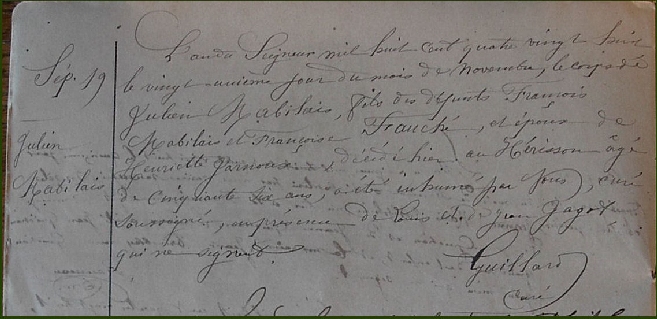 L'an du Seigneur mil huit cent quatre vingt huit
Sep. 19
le vingt unième jour du mois de Novembre, le corps de
Julien Mabilais, fils des défunts François
Julien
Mabilais
Mabilais et Françoise Franché, et époux de
Henriette, décédé hier au Hérisson âgé
de Cinquante Six ans, a été inhumé par Nous, curé
soussigné, en présence de Louis et de Jean Jagot
qui ne signent.
Guillard
curé